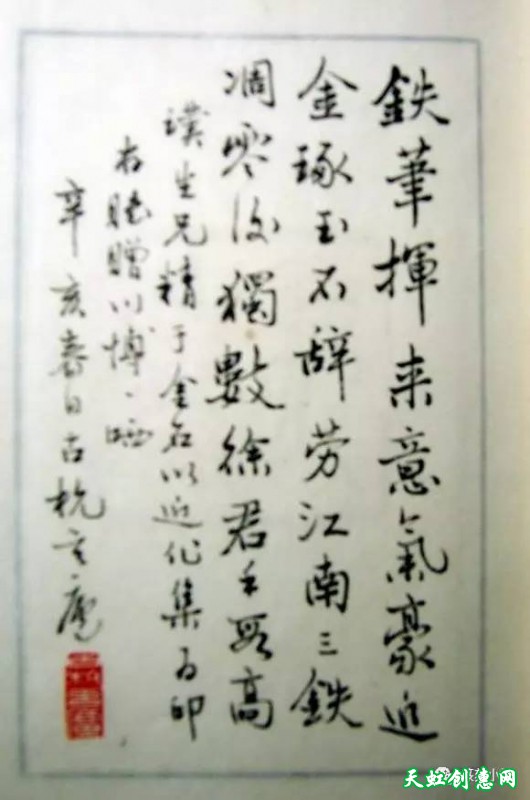 鉄筆揮来意氣豪追
金琢玉不辞劳江南三鉄
凋零後獨數徐君手段高
璞生兄精于金石以近作集为印
存贈以博一哂
辛亥春日古杭庵
天虹创意网